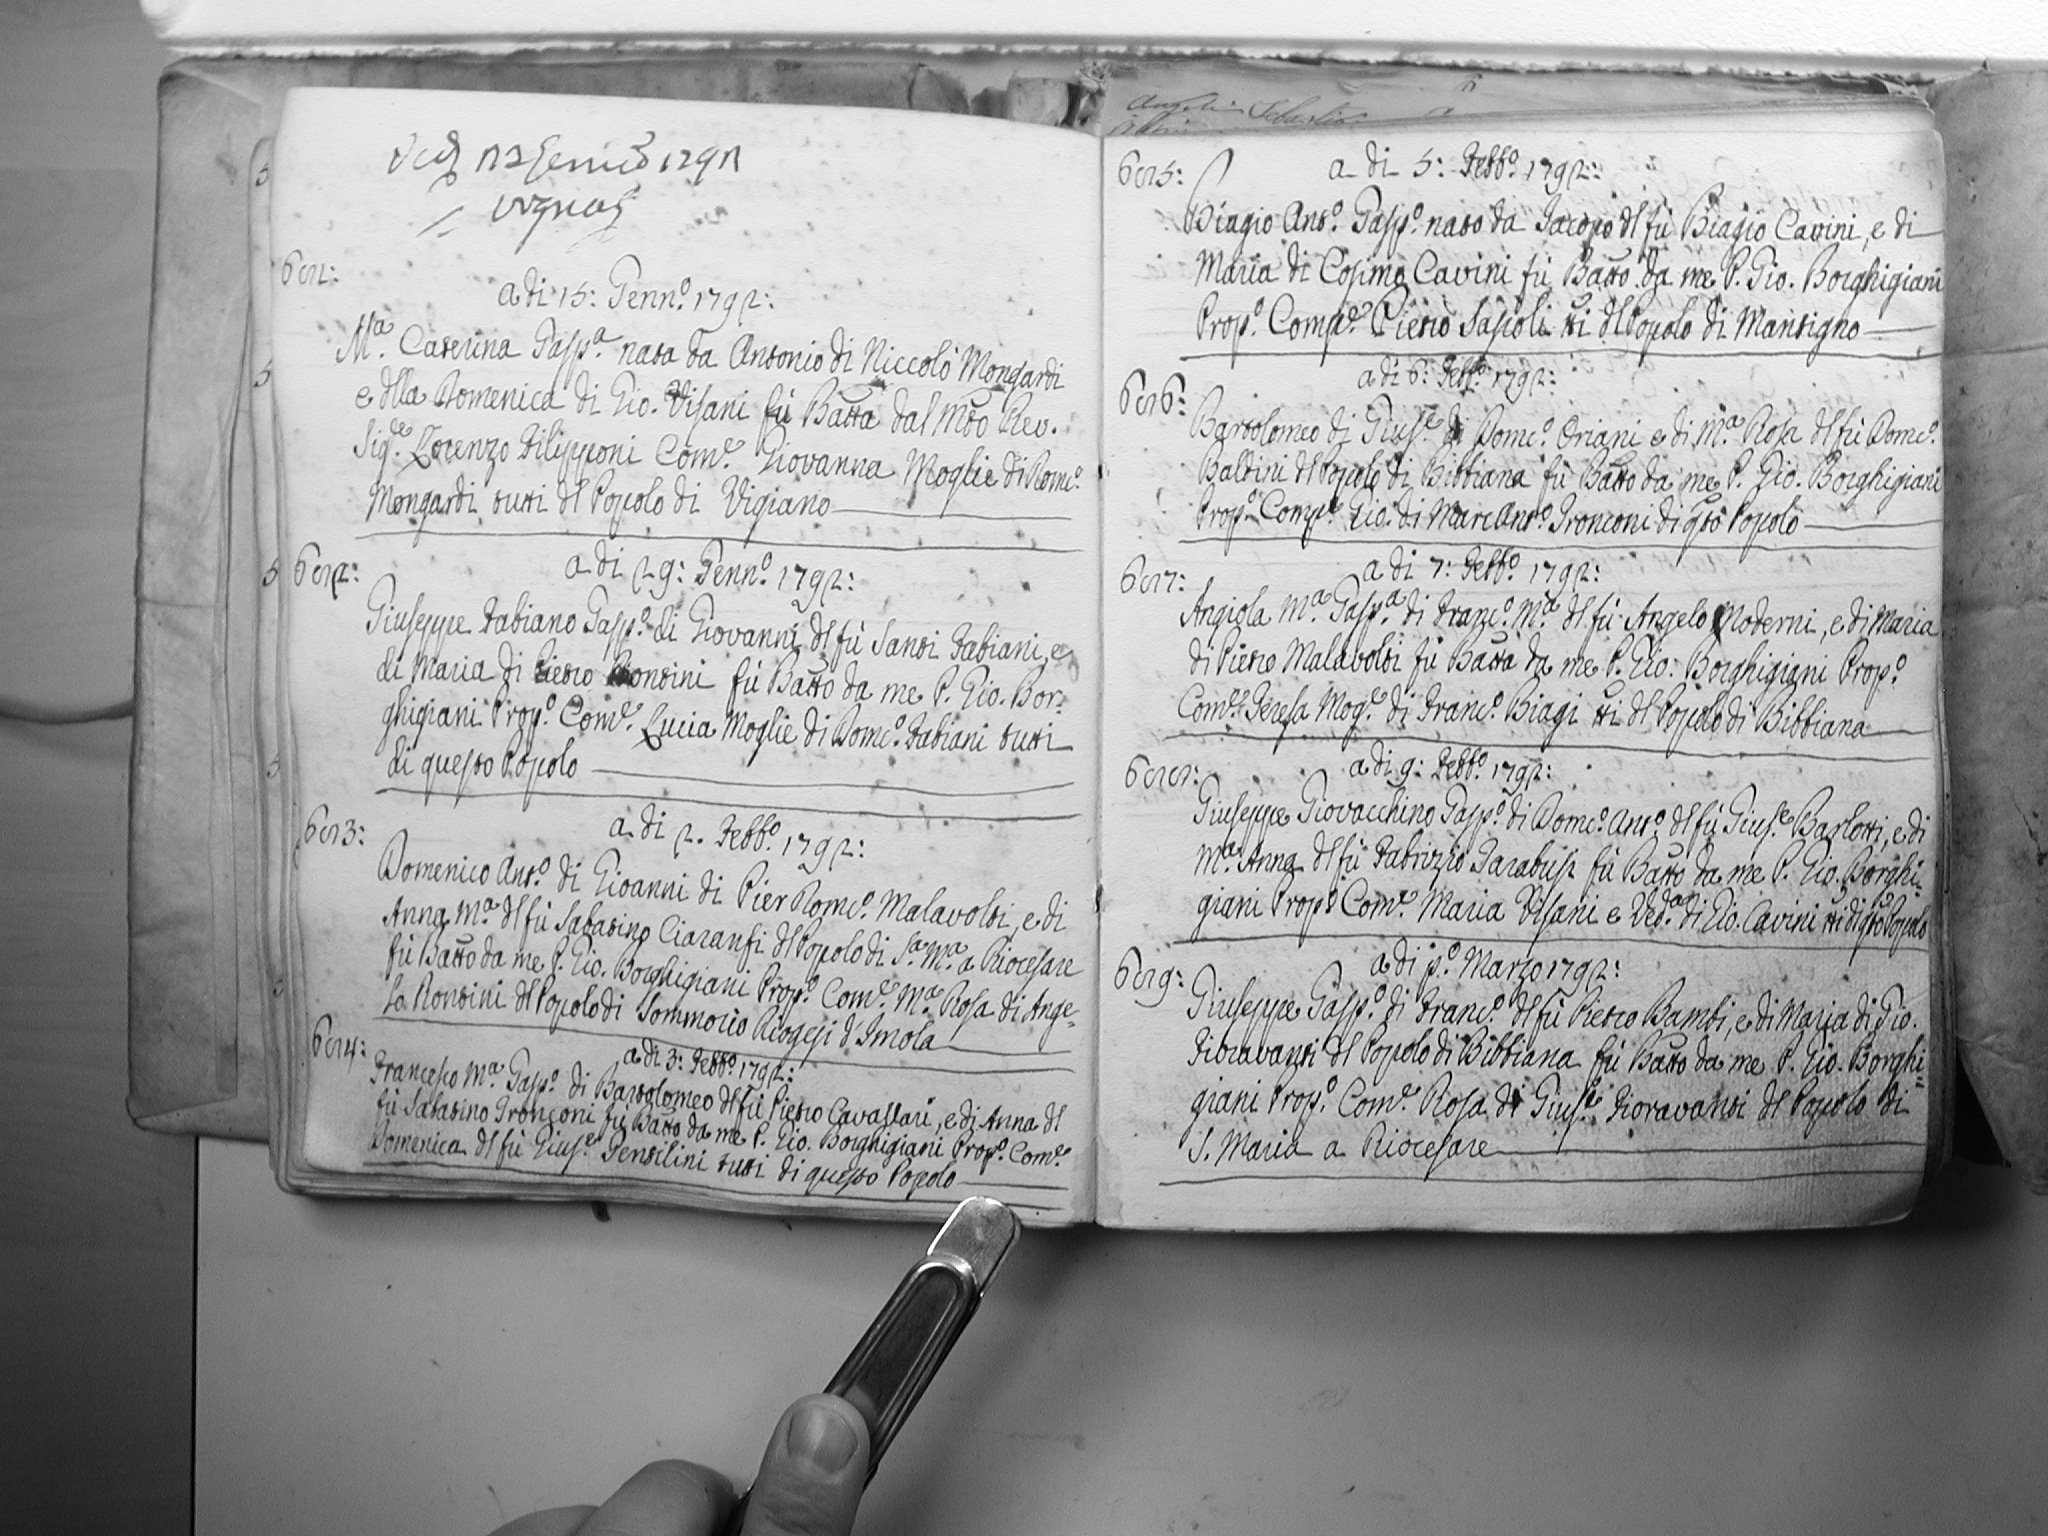 a di 15: Genn.o 1792:
M.a Caterina Gasp.a nata da Antonio di Niccolò Mongardi
e dlla Domenica di Gio. Visani fù Batta dal Mto Rev.
Sig.re Lorenzo Filipponi Com.e Giovanna Moglie di Dom.co
Mongardi tutti dl Popolo di Vigiano
a di 29: Genn.o 1792:
Giuseppe Fabiano Gasp.o di Giovanni dl fù Santi Fabiani, e
di Maria di Pietro Rontini fù Batto da me P. Gio. Bor-
ghigiani Prop.o Com.e Lucia Moglie di Dom.co Fabiani tutti
di questo Popolo
a di 2. Febb.o 1792:
Domenico Ant.o di Gioanni di Pier Dom.co Malavolti, e di
Anna M.a dl fù Sabatino Ciaranfi dl Popolo di S.a M.a a Riocesare
fù Batto da me P. Gio. Borghigiani Prop.o Com.e M.a Rosa di Ange-
lo Rontini dl Popolo di Sommorio d'Imola
a di 3: Febb.o 1792:
Francesco M.a Gasp.o di Bartolomeo dl fù Pietro Cavallari, e di Anna dl
fù Sabatino Tronconi fù Batto da me P. Gio. Borghigiani Prop.o Com.e
Domenica dl fù Gius.e Gentilini tutti di questo Popolo
a di 5: Febb.o 1792:
Biagio Ant.o Gasp.o nato da Iacopo dl fù Biagio Cavini, e di
Maria di Cosimo Cavini fù Batto da me P. Gio. Borghigiani
Prop.o Comp.e Pietro Sapoli tti dl Popolo di Mantigno
a di 6: Febb.o 1792:
Bartolomeo di Gius.e di Dom.co Oriani e di M.a Rosa dl fù Dom.co
Baldini dl Popolo di Bibbiana fù Batto da me P. Gio. Borghigiani
Prop.o Comp.e Gio. di Marc Ant.o Tronconi di qsto Popolo
a di 7: Febb.o 1792:
Angiola M.a Gasp.a di Franc.o M.a dl fù Angelo Moderni, e di Maria
di Pietro Malavolti fù Batta da me P. Gio: Borghigiani Prop.o
Com.e Teresa Mog.e di Franc.o Biagi tti dl Popolo di Bibbiana
a di 9: Febb.o 1792:
Giuseppe Giovacchino Gasp.o di Dom.co Ant.o dl fù Gius.e Barlotti, e di
M.a Anna dl fù Fabrizio Tarabusi fù Batto da me P. Gio. Borghi-
giani Prop.o Com.e Maria Visani e Ved.a di Gio. Cavini tti di qsto Popolo
a di p.o Marzo 1792:
Giuseppe Gasp.o di Franc.o dl fù Pietro Bambi, e di Maria di Gio.
Fioravanti dl Popolo di Bibbiana fù Batto da me P. Gio. Borghi-
giani Prop.o Com.e Rosa di Gius.e Fioravanti dl Popolo di
S. Maria a Riocesare